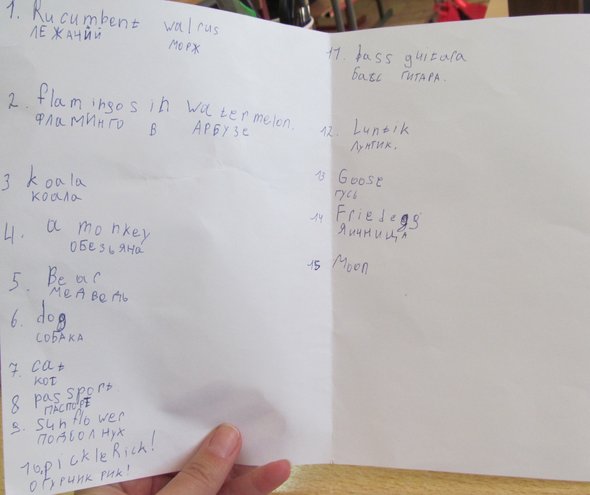 1. Rucumbent walrus
ЛЕЖАЧИЙ МОРЖ
2. flamingos in watermelon.
ФЛАМИНГО В АРБУЗЕ
3 koala
КОАЛА
4. a monkey
ОБЕЗЬЯНА
5. Bear
МЕДВЕДЬ
6. dog
СОБАКА
7. cat
КОТ
8 passport.
ПАСПОРТ
9. sunflower
ПОДБОЛНУХ
10. pickleRick!
ОГУРЧИК РИК!
11. bass guitara
БАСС ГИТАРА.
12. Luntik
ЛУНТИК.
13 Goose
ГУСЬ
14 Fried egg
ЯИЧНИЦА
15 Moon